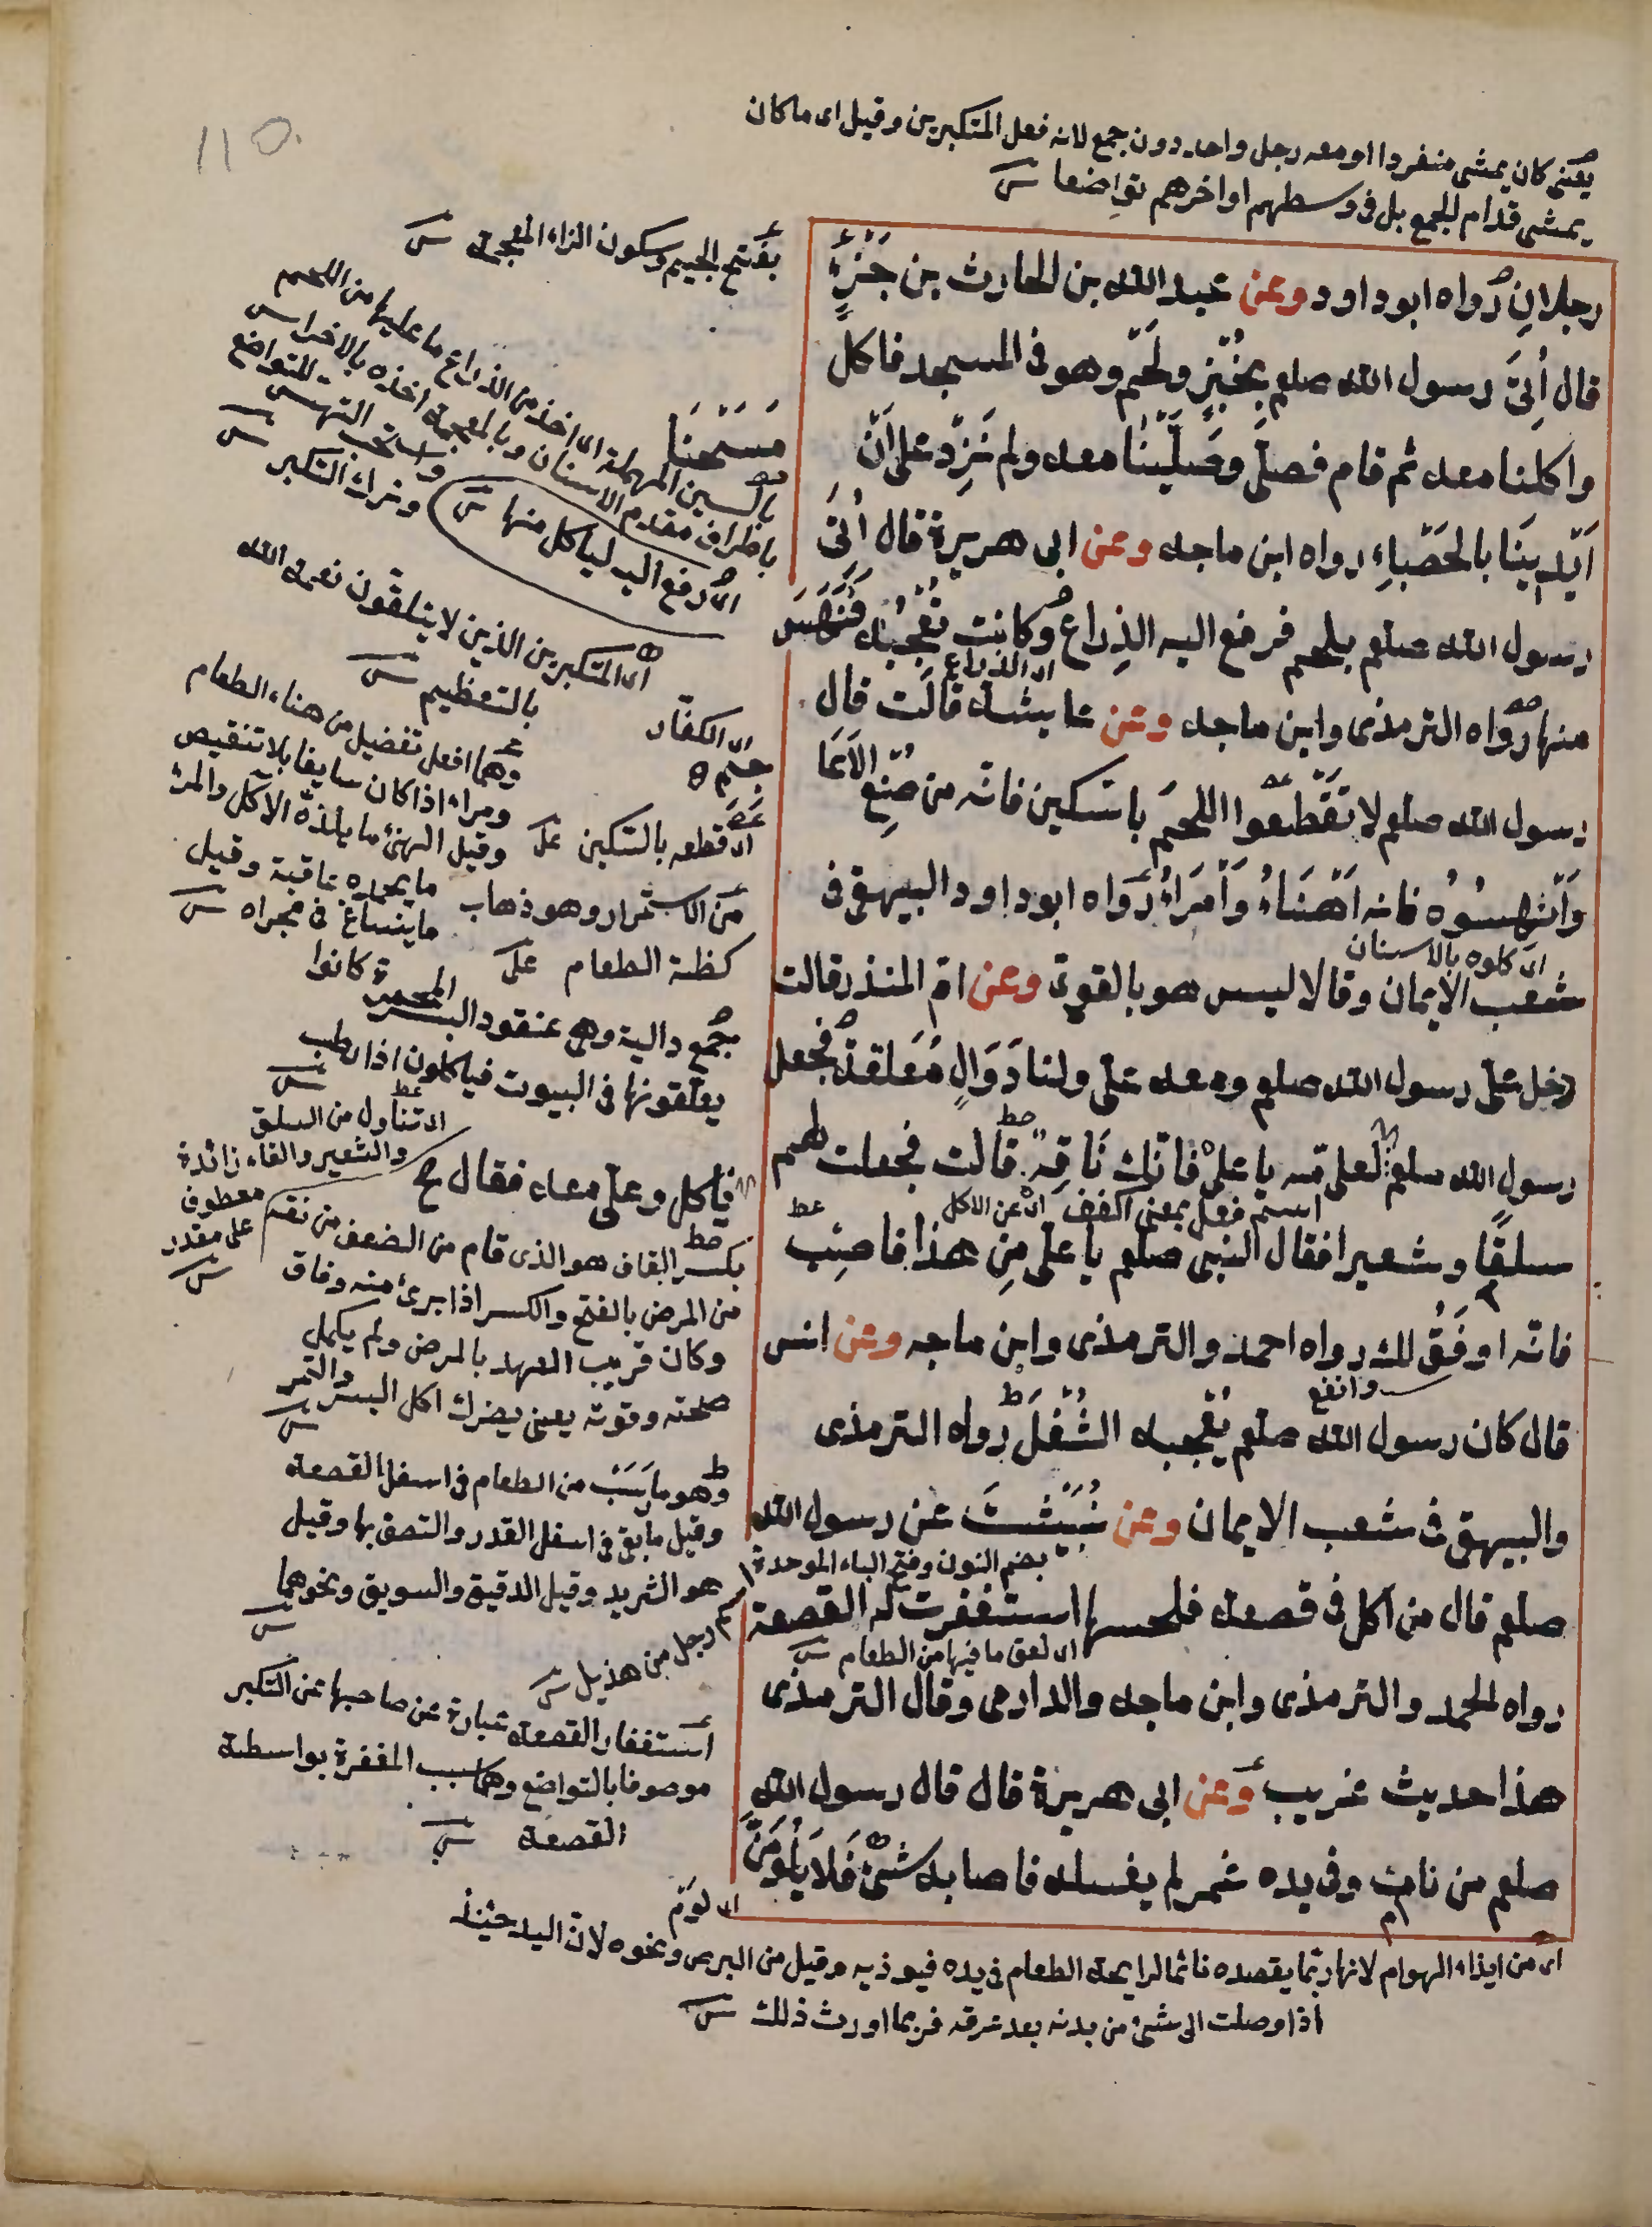 110.
يعنى كان يمشى منفردا او معه رجل واحد دون جمع لانه فعل المتكبرين وقيل اى ما كان
يمشى قدام الجمع بل فى وسطهم او اخرهم تواضعا
رجلانِ رواه ابو داود وعن عبد الله بن الحارث بن جَزْءٍ
قال اُتِىَ رسول الله صلعم بخُبْزٍ ولَحْمٍ وهو فى المسجد فاكل
واكلنا معه ثم قام فصلّى وصَلَّيْنَا معه ولم نَزِدْ على اَنْ
اَيْدِيَنَا بالحَصْباءِ رواه ابن ماجه وعن ابى هريرة قال اُتِىَ
رسول الله صلعم بلحم فرفع اليه الذِراع وكانت تُعْجِبُه فَنَهَسَ
اى الذراع
منها رواه الترمذى وابن ماجه وعن عايشه قالت قال
رسول الله صلعم لا تَقْطَعُوا اللحمَ بالسّكين فانّه من صُنْعِ الاَعَا
وَانْهِسُوُه فانه اَهْنَاءُ وَاَمْرَاءُ رواه ابو داود البيهقى فى
اى كلوه بالاسنان
شعب الايمان وقالا ليس هو بالقوى وعن امّ المنذر قالت
دخل علىّ رسول الله صلعم ومعه علىّ ولنا دَوَالٍ مُعَلقةٌ فجعل
رسول الله صلعم لعلى مه يا علىّ فانّك نَاقِهٌ قالت فجعلت لهم
اسم فعل بمعنى اكفف اى عن الاكل
سلقًا وشعيرا فقال النبى صلعم يا علىّ مِن هذا فاصِبْ
فانّه اوفَقُ لك رواه احمد والترمذى وابن ماجه وعن انس
وانفع
قال كان رسول الله صلعم يُعْجبه الثُّفْلَ رواه الترمذى
والبيهقى فى شعب الايمان وعن نُبَيْشَتَ عن رسول الله
بضم النون وفتح الباء الموحدة
صلعم قال من اكل فى قصعه فلحسها استغفرت له القصعة
اى لعق ما فيها من الطعام
رواه احمد والترمذى وابن ماجه والدارمى وقال الترمذى
هذا حديث غريب وعن ابى هريرة قال قال رسول الله
صلعم من نام وفى يده غمر لم يغسله فاصابه شئ فَلَا يَلُوْمَنَّ
بفتح الجيم وسكون الزاء المعجمة
مَسَحْنَا
بالسين المهملة اى اخذ من الذراع ما عليها من اللحم
باطراف مقدم الاسنان وبالمعجمة اخذه بالاضراس
واستحب النهس للتواضع
وترك التكبر
اى رفع اليه لياكل منها
اى المتكبرين الذين لا يتلقون نعمة الله
بالتعظيم
اى الكفار
جم
وهما افعل تفضيل من هناء الطعام
ومراء اذا كان سايغا بلا تنقيص
اى قطعه بالسّكين
وقيل الهنئ ما يلذه الآكل والمرئ
ما يحمده عاقبة وقيل
ما ينساغ فى مجراه
من الاستمرار وهو ذهاب
كظة الطعام
جمع دالية وهى عنقود البسر كانوا
يعلقونها فى البيوت فياكلون اذا رطب
اى تناول من السلق
والشعير والفاء زائدة
معطوف
على مقدر
فاكل وعلىّ معه فقال
بكسر القاف هو الذى قام من الضعف من نقه
من المرض بالفتح والكسر اذا برئ منه وفاق
وكان قريب العهد بالمرض ولم يكمل
صحته وقوته يعنى يضرك اكل البسر والتمر
وهو ما يَسَبُ من الطعام فى اسفل القصعة
وقيل ما بقى فى اسفل القدر والتصق بها وقيل
هو الثريد وقيل الدقيق والسويق ونحوهما
رجل من هذيل
استغفار القصعه عبارة عن صاحبها عن التكبر
موصوفا بالتواضع وهما سبب المغفرة بواسطة
القصعة
اى لوم
اى من ايذاء الهوام لانها ربّما يقصده نائما لرايحة الطعام فى يده فيوذيه وقيل من البرص ونحوه لانّ اليد حينئذ
اذا وصلت الى شئ من بدنه بعد عرقه فربما اورث ذلك